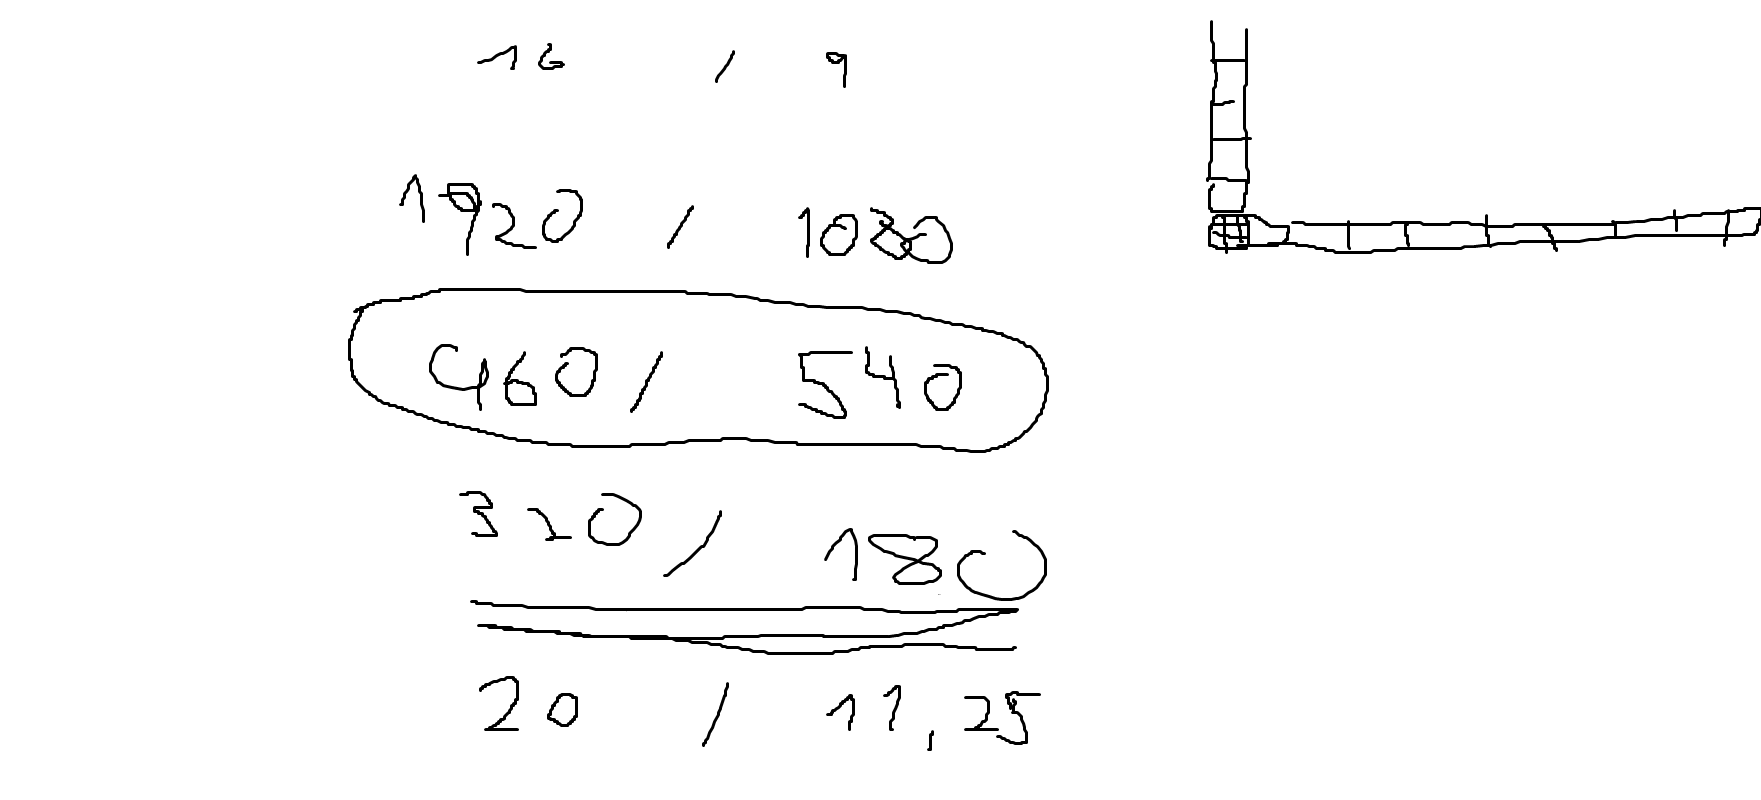 16 / 9
1920 / 1080
960 / 540
320 / 180
20 / 11,25